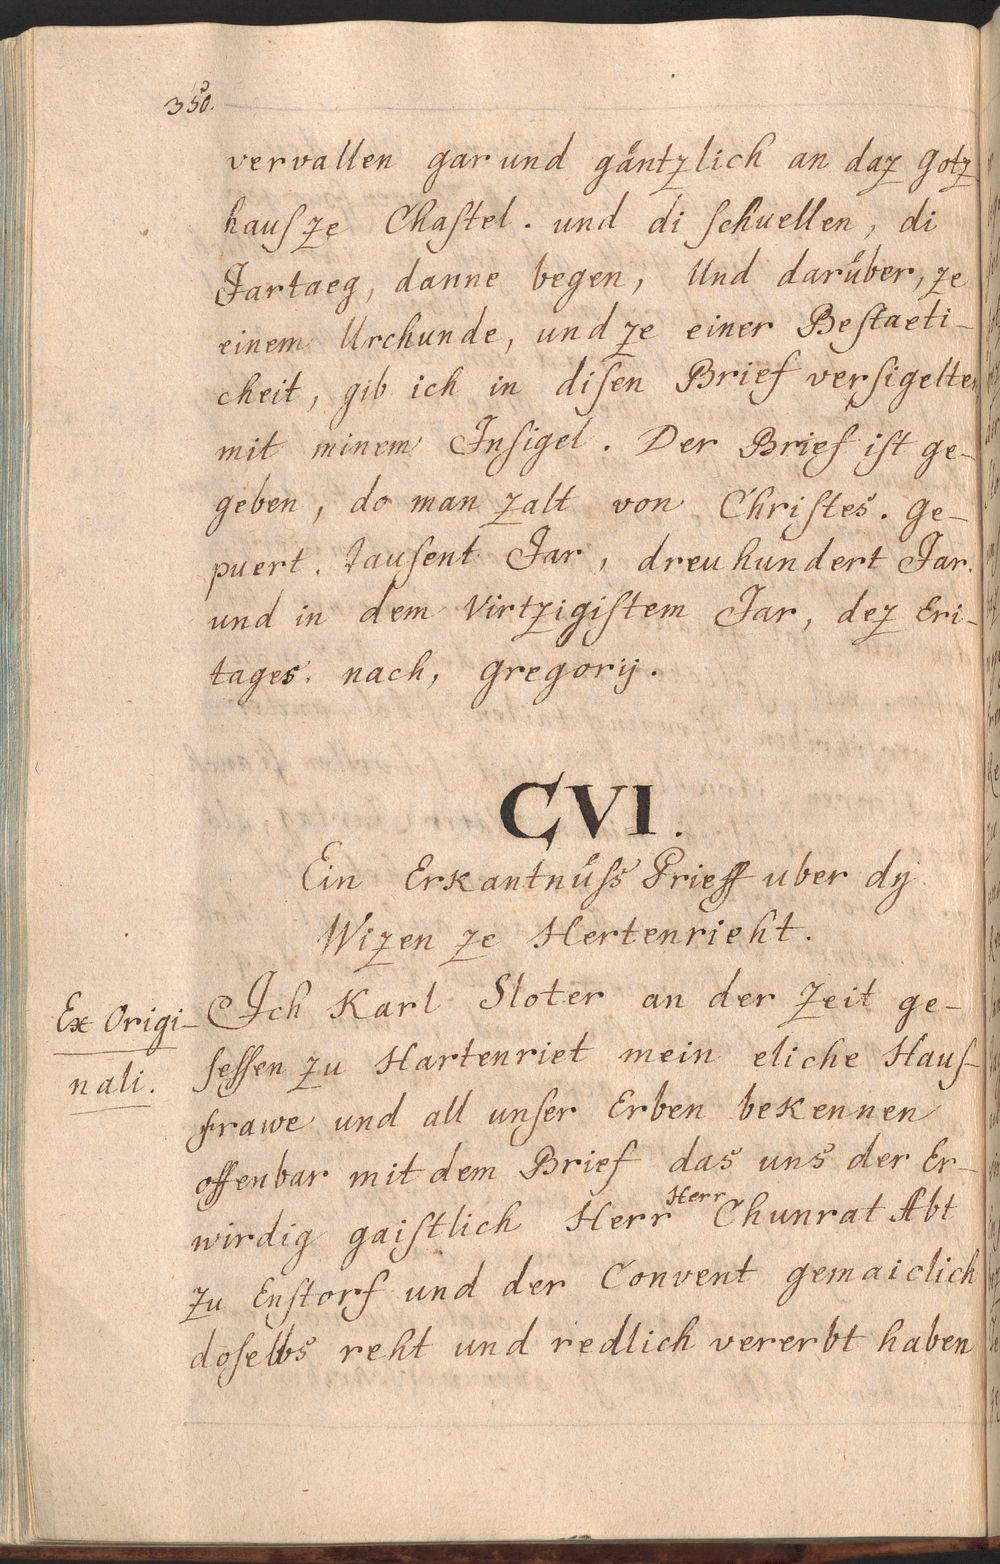 350.
vervallen gar und gäntzlich an daz Gotz
hauſ ze Chaſtel. und di ſchuellen, di
Jartaeg, danne begen, Und darüber, ze
einem Urchunde, und ze einer Beſtaeti-
cheit, gib ich in diſen Brief verſigelten
mit minem Inſigel. Der Brief iſt ge-
geben, do man zalt von Chriſtes. Ge-
puert. tauſent Jar, dreuhundert Jar.
und in dem Virtzigiſtem Jar, dez Eri-
tages. nach, Gregorij.
CVI.
Ein Erkantnüſs Prieff uber dij
Wizen ze Hertenrieht.
Ex Origi-
nali.
Ich Karl Sloter an der zeit ge-
ſeſſen zu Hartenriet mein eliche Hauſ-
frawe und all unſer Erben bekennen
offenbar mit dem Brief das uns der Er-
wirdig gaiſtlich Herr Herr Chunrat Abt
zu Enſtorf und der Convent gemaiclich
doſelbs reht und redlich vererbt haben